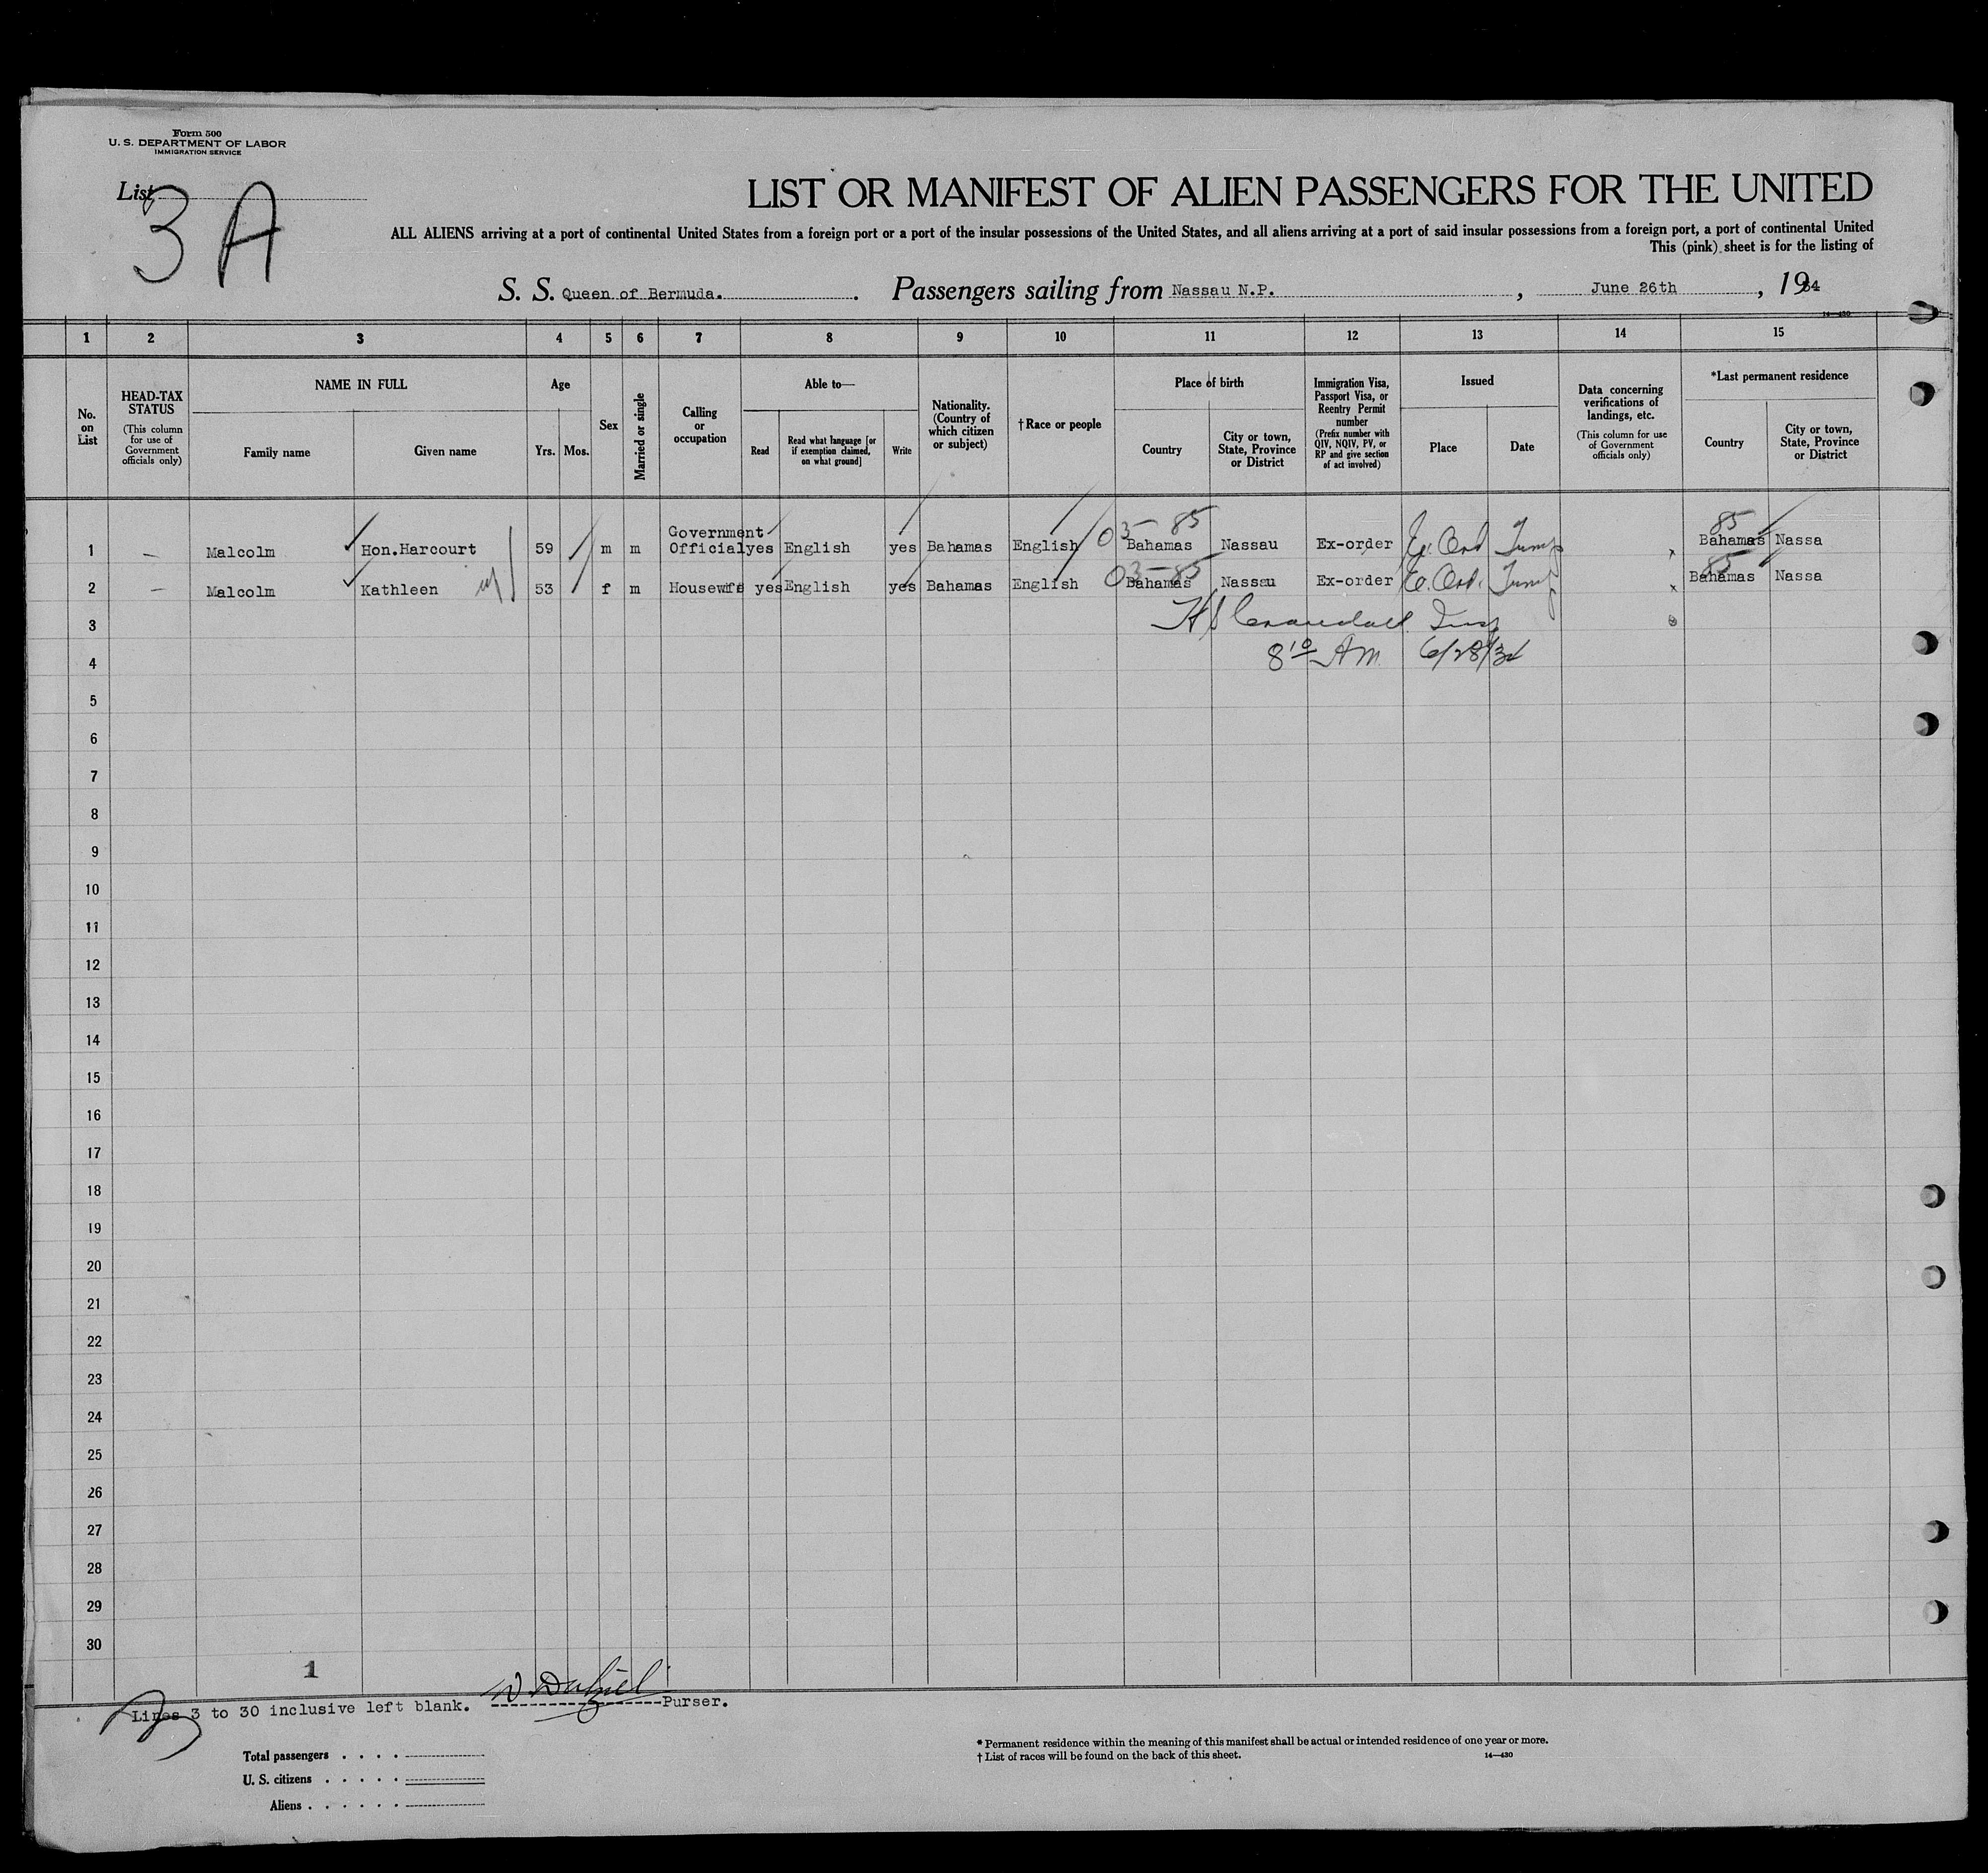 Form 500
U. S. DEPARTMENT OF LABOR
IMMIGRATION SERVICE
List 3 A
LIST OR MANIFEST OF ALIEN PASSENGERS FOR THE UNITED
ALL ALIENS arriving at a port of continental United States from a foreign port or a port of the insular possessions of the United States, and all aliens arriving at a port of said insular possessions from a foreign port, a port of continental United
This (pink) sheet is for the listing of
S. S. Queen of Bermuda. Passengers sailing from Nassau N.P. , June 26th , 1934
14—430
1 2 3 4 5 6 7 8 9 10 11 12 13 14 15
No. on List
HEAD-TAX STATUS
(This column for use of Government officials only)
NAME IN FULL
Family name
Given name
Age
Yrs.
Mos.
Sex
Married or single
Calling or occupation
Able to—
Read
Read what language [or if exemption claimed, on what ground]
Write
Nationality. (Country of which citizen or subject)
†Race or people
Place of birth
Country
City or town, State, Province or District
Immigration Visa, Passport Visa, or Reentry Permit number
(Prefix number with QIV, NQIV, PV, or RP and give section of act involved)
Issued
Place
Date
Data concerning verifications of landings, etc.
(This column for use of Government officials only)
*Last permanent residence
Country
City or town, State, Province or District
03-85 85
1 — Malcolm Hon.Harcourt 59 m m Government Official yes English yes Bahamas English Bahamas Nassau Ex-order Bahamas Nassa
03-85 85
2 — Malcolm Kathleen 53 f m Housewife yes English yes Bahamas English Bahamas Nassau Ex-order Bahamas Nassa
3
4 8 10 AM 6/28/34
5
6
7
8
9
10
11
12
13
14
15
16
17
18
19
20
21
22
23
24
25
26
27
28
29
30
1
Lines 3 to 30 inclusive left blank. Purser.
Total passengers
U. S. citizens
Aliens
* Permanent residence within the meaning of this manifest shall be actual or intended residence of one year or more.
† List of races will be found on the back of this sheet.
14—430